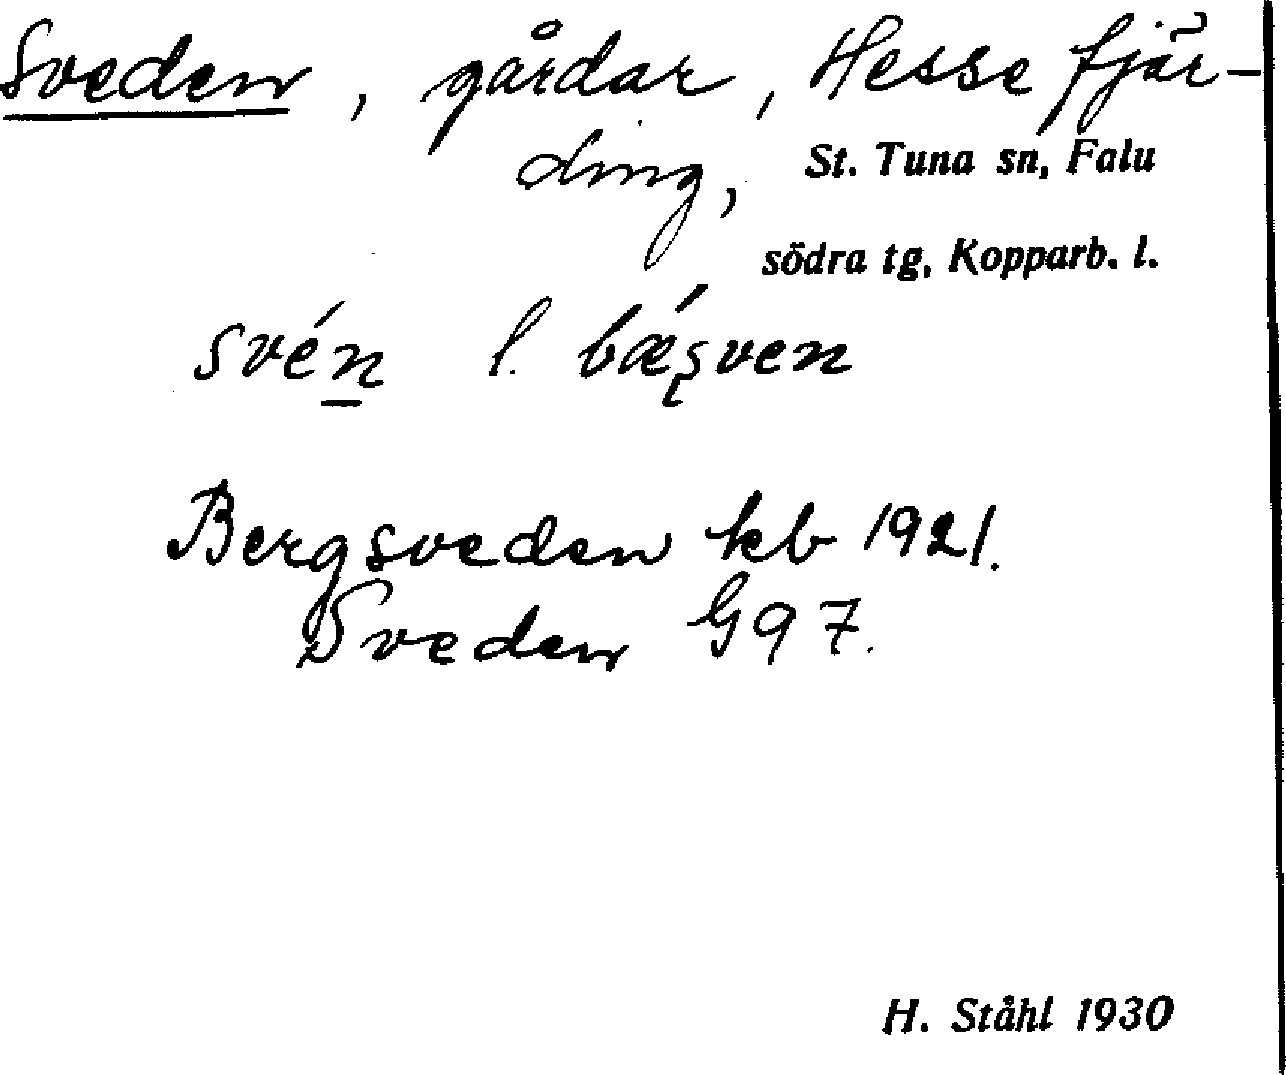 Sveden, gårdar, Hesse fjär-
ding, St. Tuna sn, Falu
södra tg, Kopparb. l.
svén l. bǽʂven
Bergsveden kb 1921.
Sveden G97.
H. Ståhl 1930